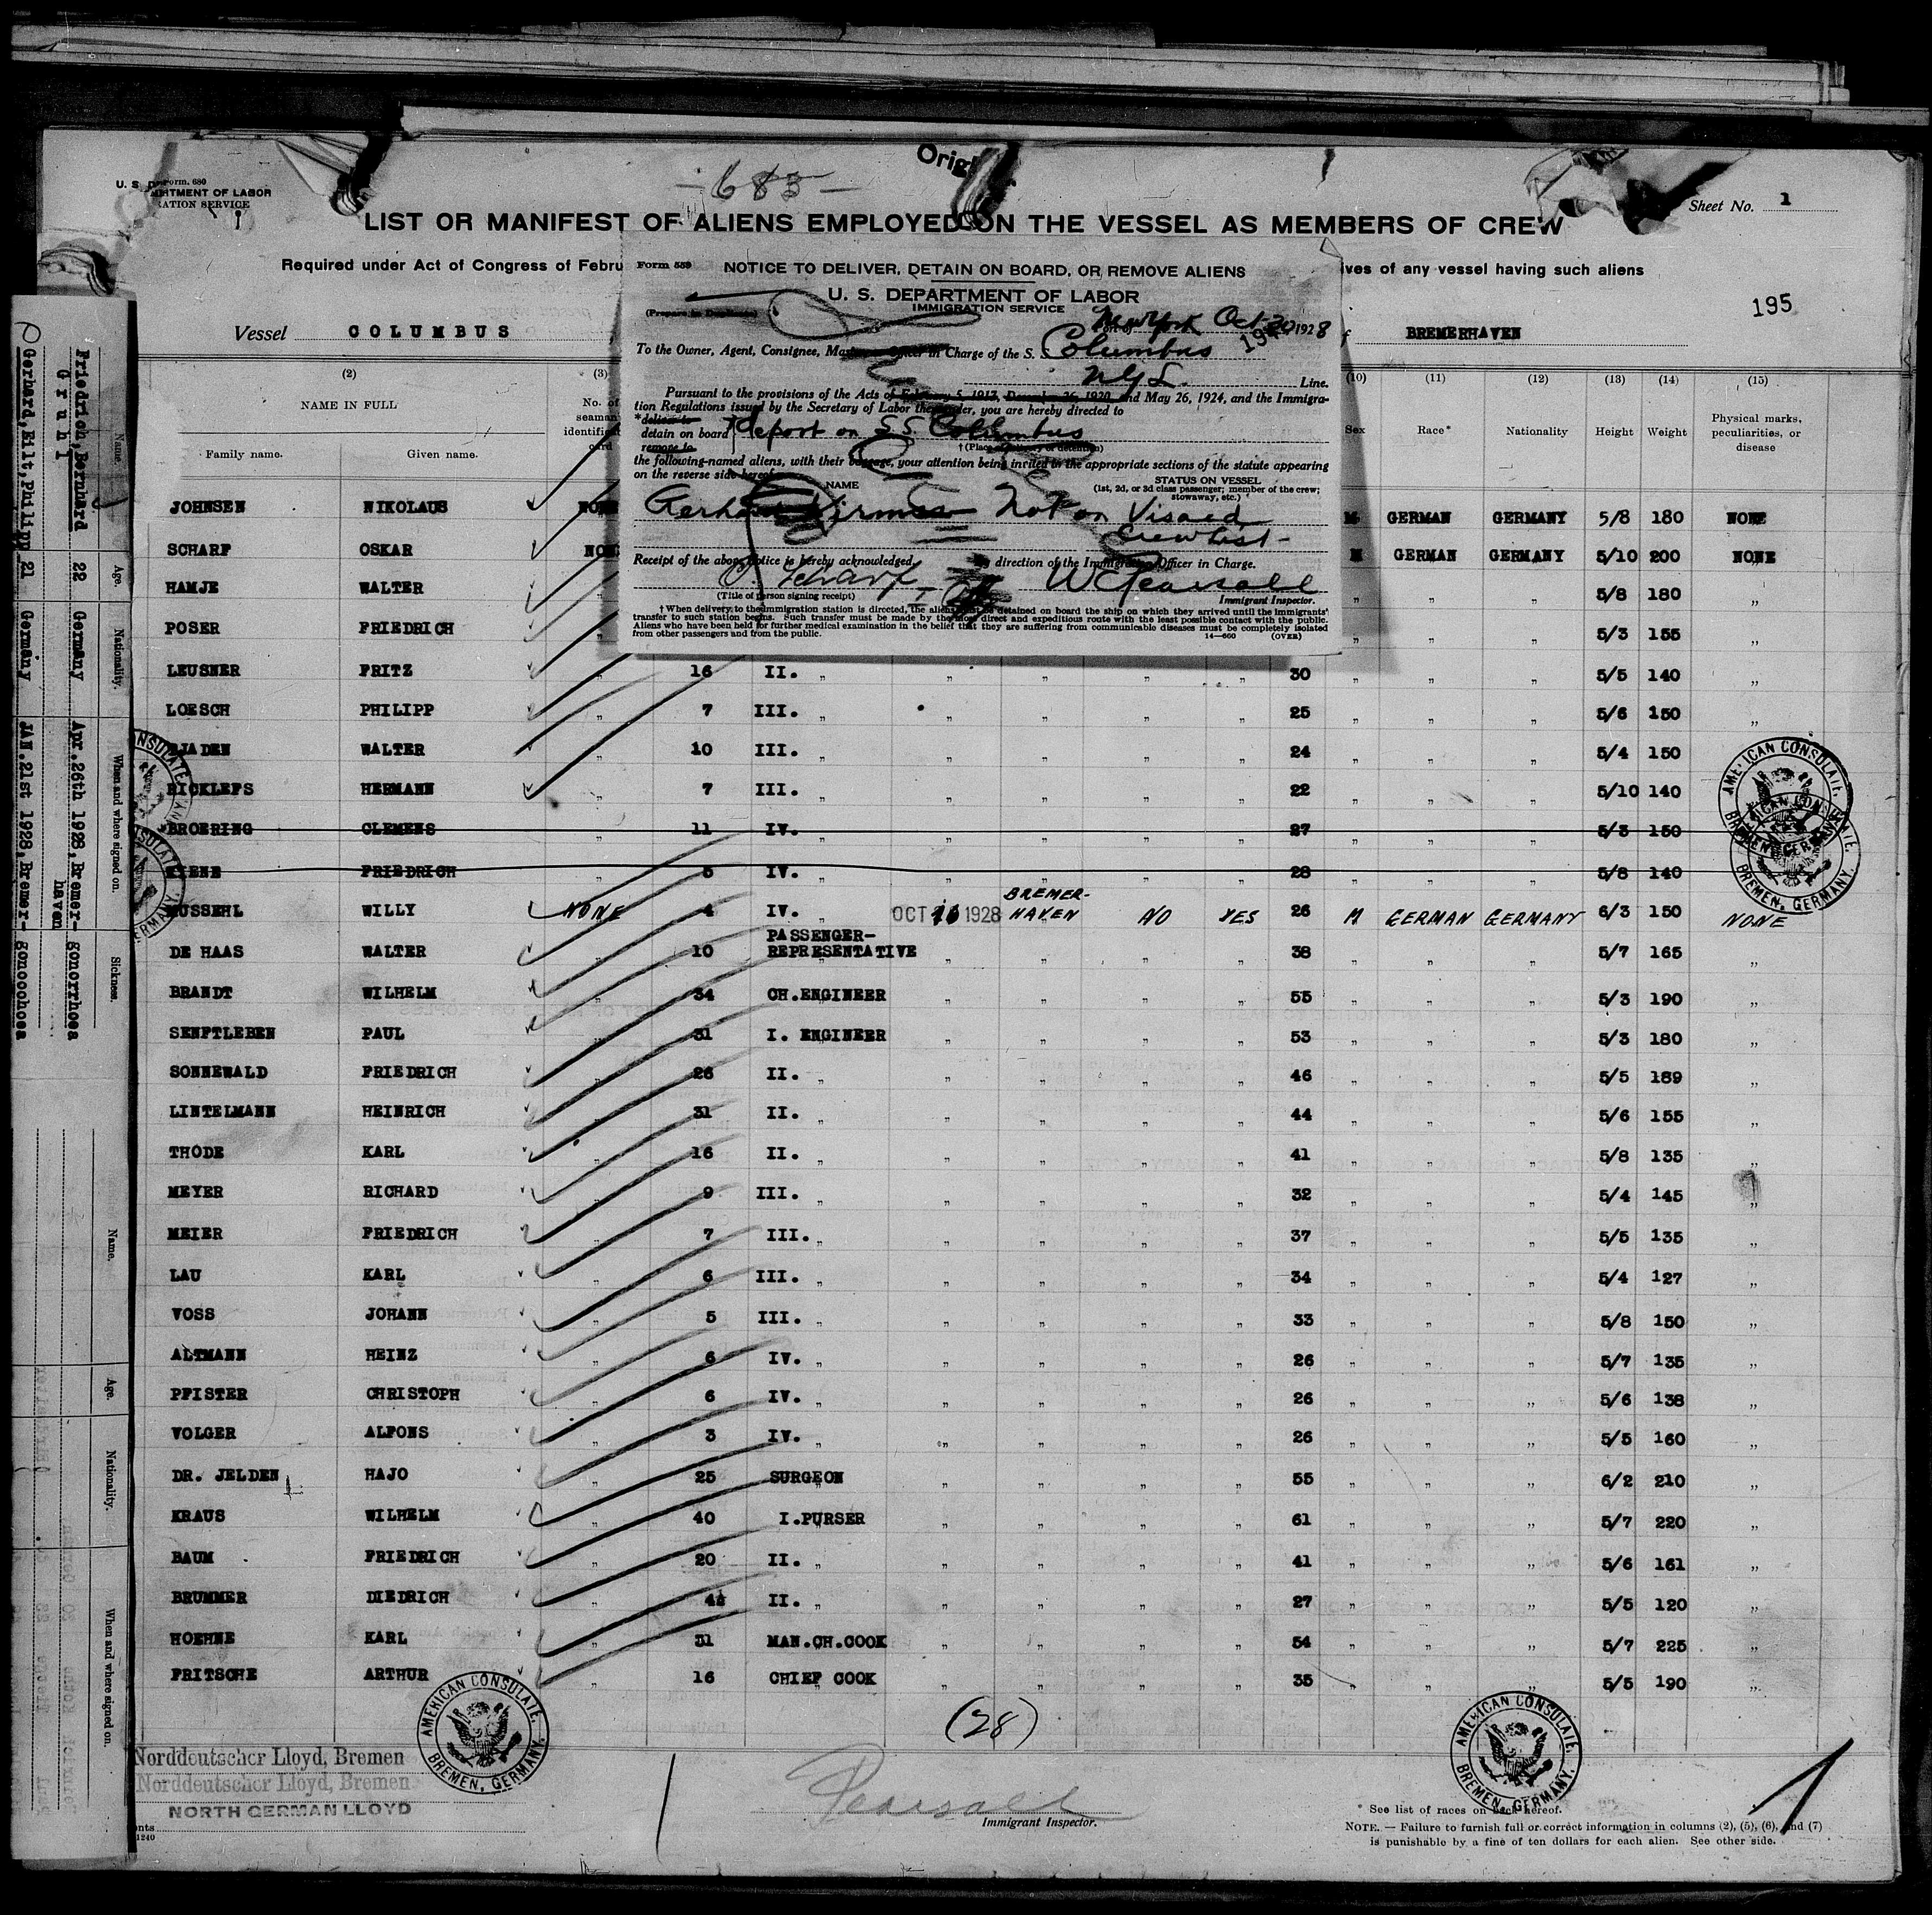 Original
-683-
U. S. D
Form. 680
ARTMENT OF LABOR
RATION SERVICE
Sheet No. 1
LIST OR MANIFEST OF ALIENS EMPLOYED ON THE VESSEL AS MEMBERS OF CREW
Required under Act of Congress of Febru
ives of any vessel having such aliens
195
Vessel COLUMBUS
f BREMERHAVEN
Form 559
NOTICE TO DELIVER, DETAIN ON BOARD, OR REMOVE ALIENS
U. S. DEPARTMENT OF LABOR
IMMIGRATION SERVICE
(Prepare in Duplicate)
New York Oct 20 1928
To the Owner, Agent, Consignee, Master or Officer in Charge of the S. S. Columbus
NGL. Line.
Pursuant to the provisions of the Acts of February 5, 1917, December 26, 1920, and May 26, 1924, and the Immigra-
tion Regulations issued by the Secretary of Labor thereunder, you are hereby directed to
*deliver to
detain on board deport on S.S. Columbus
remove to †(Place of delivery, or detention)
the following-named aliens, with their baggage, your attention being invited to the appropriate sections of the statute appearing
on the reverse side hereof
NAME STATUS ON VESSEL
(1st, 2d, or 3d class passenger; member of the crew;
stowaway, etc.)
Not on Visaed
Crew List-
Receipt of the above notice is hereby acknowledged. By direction of the Immigration Officer in Charge.
O. Scharf W C Pearsall
(Title of person signing receipt) Immigrant Inspector.
†When delivery to the immigration station is directed, the aliens must be detained on board the ship on which they arrived until the immigrants'
transfer to such station begins. Such transfer must be made by the most direct and expeditious route with the least possible contact with the public.
Aliens who have been held for further medical examination in the belief that they are suffering from communicable diseases must be completely isolated
from other passengers and from the public.
14—600 (OVER)
(2) (3) (10) (11) (12) (13) (14) (15)
NAME IN FULL No. of seaman identification card Sex Race* Nationality Height Weight Physical marks, peculiarities, or disease
Family name. Given name.
JOHNSEN NIKOLAUS NONE M GERMAN GERMANY 5/8 180 NONE
SCHARF OSKAR NONE M GERMAN GERMANY 5/10 200 NONE
HAMJE WALTER " " " 5/8 180 "
POSER FRIEDRICH " " " 5/3 155 "
LEUSNER FRITZ " 16 II. " " " " " 30 " " " 5/5 140 "
LOESCH PHILIPP " 7 III. " " " " " 25 " " " 5/6 150 "
TJADEN WALTER " 10 III. " " " " " 24 " " " 5/4 150 "
RICKLEFS HERMANN " 7 III. " " " " " 22 " " " 5/10 140 "
BROERING CLEMENS " 11 IV. " " " " " 27 " " " 5/3 150 "
KIENE FRIEDRICH " 5 IV. " " " " " 28 " " " 5/8 140
MUSSEHL WILLY NONE 4 IV. " OCT 16 1928 BREMER-HAVEN NO YES 26 M GERMAN GERMANY 6/3 150 NONE
DE HAAS WALTER " 10 PASSENGER-REPRESENTATIVE " " " " 38 " " " 5/7 165 "
BRANDT WILHELM " 34 CH.ENGINEER " " " " 55 " " " 5/3 190 "
SENFTLEBEN PAUL " 31 I. ENGINEER " " " " 53 " " " 5/3 180 "
SONNEWALD FRIEDRICH " 26 II. " " " " " 46 " " " 5/5 189 "
LINTELMANN HEINRICH " 31 II. " " " " " 44 " " " 5/6 155 "
THODE KARL " 16 II. " " " " " 41 " " " 5/8 135 "
MEYER RICHARD " 9 III. " " " " " 32 " " " 5/4 145 "
MEIER FRIEDRICH " 7 III. " " " " " 37 " " " 5/5 135 "
LAU KARL " 6 III. " " " " " 34 " " " 5/4 127 "
VOSS JOHANN " 5 III. " " " " " 33 " " " 5/8 150 "
ALTMANN HEINZ " 6 IV. " " " " " 26 " " " 5/7 135 "
PFISTER CHRISTOPH " 6 IV. " " " " " 26 " " " 5/6 138 "
VOLGER ALFONS " 3 IV. " " " " " 26 " " " 5/5 160 "
DR. JELDEN HAJO " 25 SURGEON " " " " 55 " " " 6/2 210 "
KRAUS WILHELM " 40 I.PURSER " " " " 61 " " " 5/7 220 "
BAUM FRIEDRICH " 20 II. " " " " " 41 " " " 5/6 161 "
BRUMMER DIEDRICH " II. " " " " " 27 " " " 5/5 120 "
HOEHNE KARL " 31 MAN.CH.COOK " " " " 54 " " " 5/7 225 "
FRITSCHE ARTHUR " 16 CHIEF COOK " " " " 35 " " " 5/5 190 "
(28)
AMERICAN CONSULATE. BREMEN, GERMANY.
AMERICAN CONSULATE. BREMEN, GERMANY.
AMERICAN CONSULATE. BREMEN, GERMANY.
Norddeutscher Lloyd, Bremen
Norddeutscher Lloyd, Bremen
NORTH GERMAN LLOYD
Pearsall
Immigrant Inspector.
1
* See list of races on back hereof.
NOTE. — Failure to furnish full or correct information in columns (2), (5), (6), and (7)
is punishable by a fine of ten dollars for each alien. See other side.
nts
1240
Name. Age. Nationality. When and where signed on. Sickness.
Friedrich, Bernhard Gruhl 22 Germany Apr. 26th 1928, Bremer-haven gonorrhoea
Gerhard, Eilt, Philipp 21 Germany JAN. 21st 1928, Bremer- gonoohoea
Name. Age. Nationality. When and where signed on.